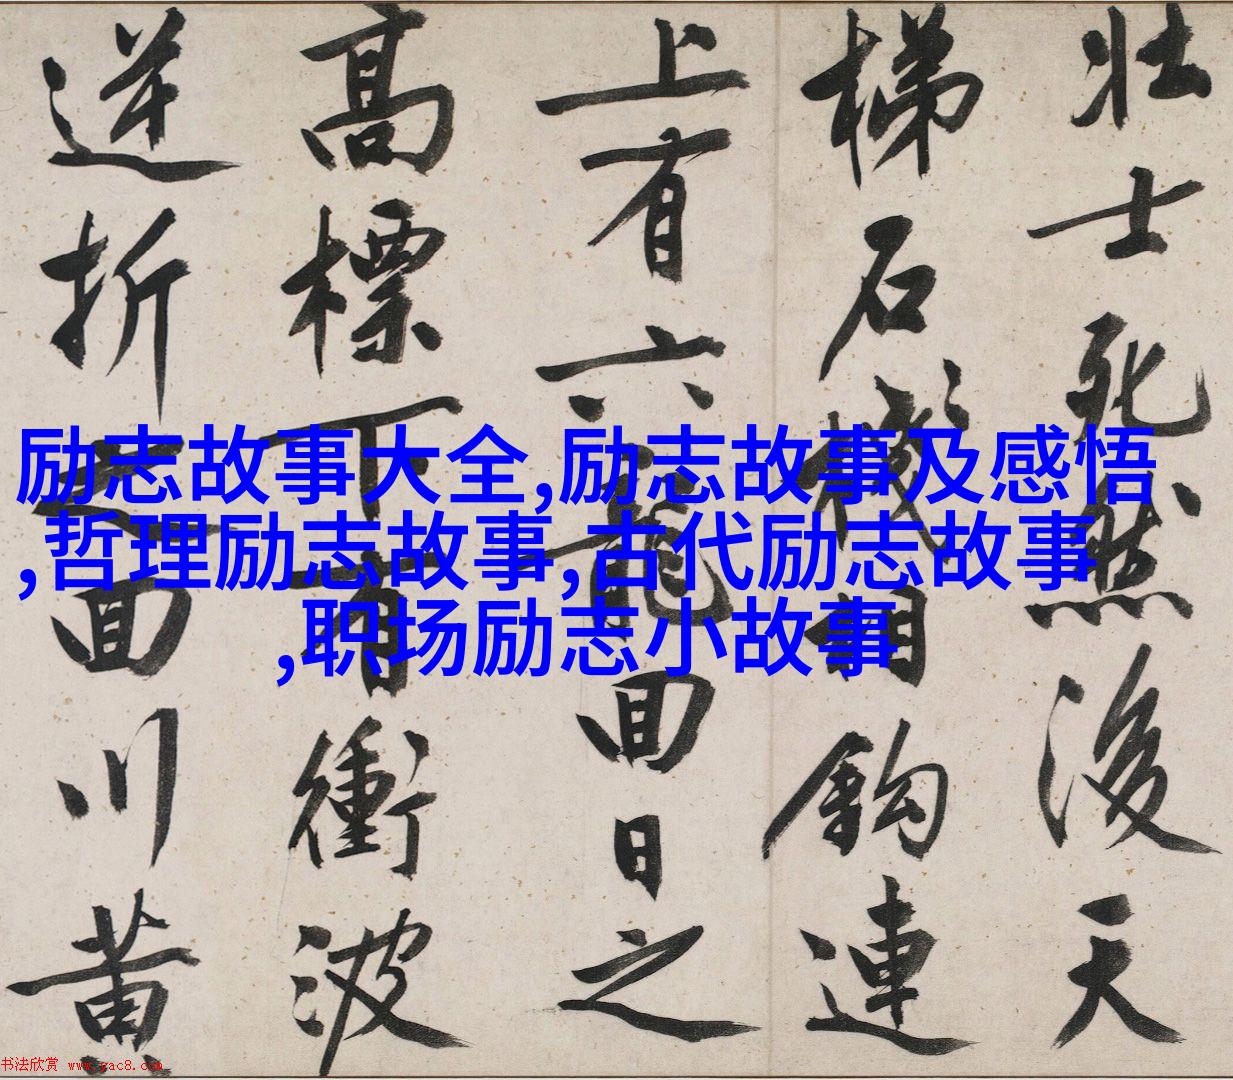 壯士死然後天
梯石棧相鉤連
上有六龍回日之
高標下有衝波
逆折之回川黃
励志故事大全,励志故事及感悟
,哲理励志故事,古代励志故事
,职场励志小故事
书法欣赏 www.yac8.com